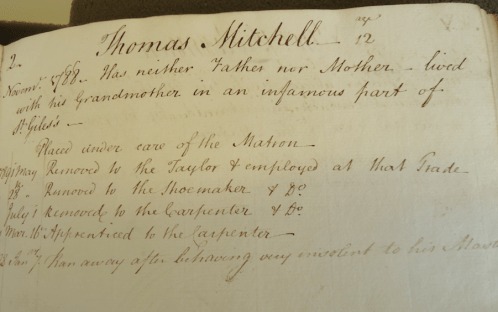 2. Thomas Mitchell — ag 12
Novemr. 1788 — Has neither Father nor Mother — lived
with his Grandmother in an infamous part of
St. Giles's —
Placed under care of the Matron —
May Removed to the Taylor & employed at that Trade
Removed to the Shoemaker & Do.
July 1 Removed to the Carpenter & Do.
Mar. 16 Apprenticed to the Carpenter —
Jany. 7. Ran away after behaving very insolent to his